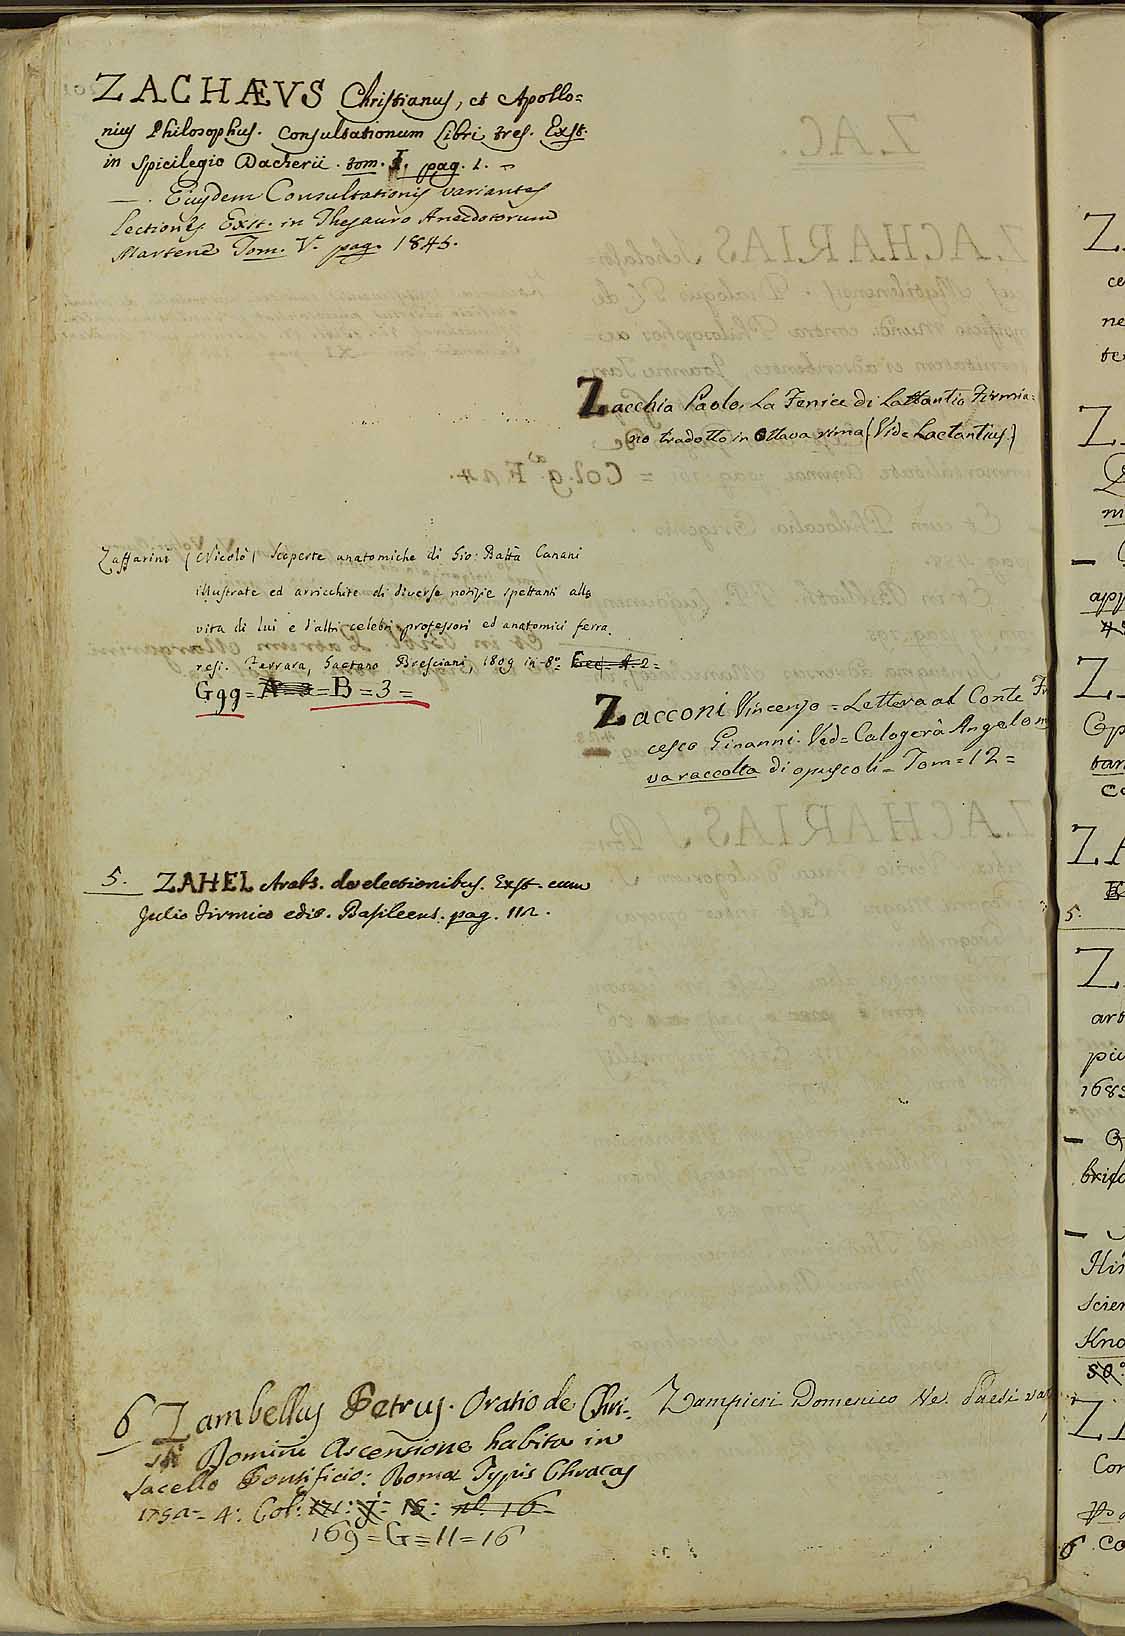 ZACHÆVS Christianus, et Apollo=
nius Philosophus. Consultationum Libri tres. Exst.
in Spicilegio Dacherii. tom. I. pag. 1.
—. Eiusdem Consultationis variantes
lectiones Exst. in Thesauro Anecdotorum
Martene Tom. V. pag. 1845.
Zacchia Paolo. La Fenice di Lattantio Firmia=
no tradotto in Ottava rima (Vide Lactantius)
Zaffarini (Nicolò) Scoperte anatomiche di Gio: Batta Canani
illustrate ed arricchite di diverse notizie spettanti alla
vita di lui e d'altri celebri professori ed anatomici ferra.
resi. Ferrara, Gaetano Bresciani, 1809 in-8º
Ggg = B = 3 =
Zacconi Vincenzo = Lettera al Conte
cesco Ginanni. Ved= Calogerà Angelo
va raccolta di opuscoli = Tom = 12 =
5. ZAHEL Arabs. de electionibus. Exst. cum
Julio Firmico edit. Basileens. pag. 112.
6 Zambellus Petrus. Oratio de Chri-
sti Domini Ascensione habita in
Sacello Pontificio: Romæ Typis Chracas
4: Col:
169 = G = 11 = 16
Zampieri Domenico Ve.